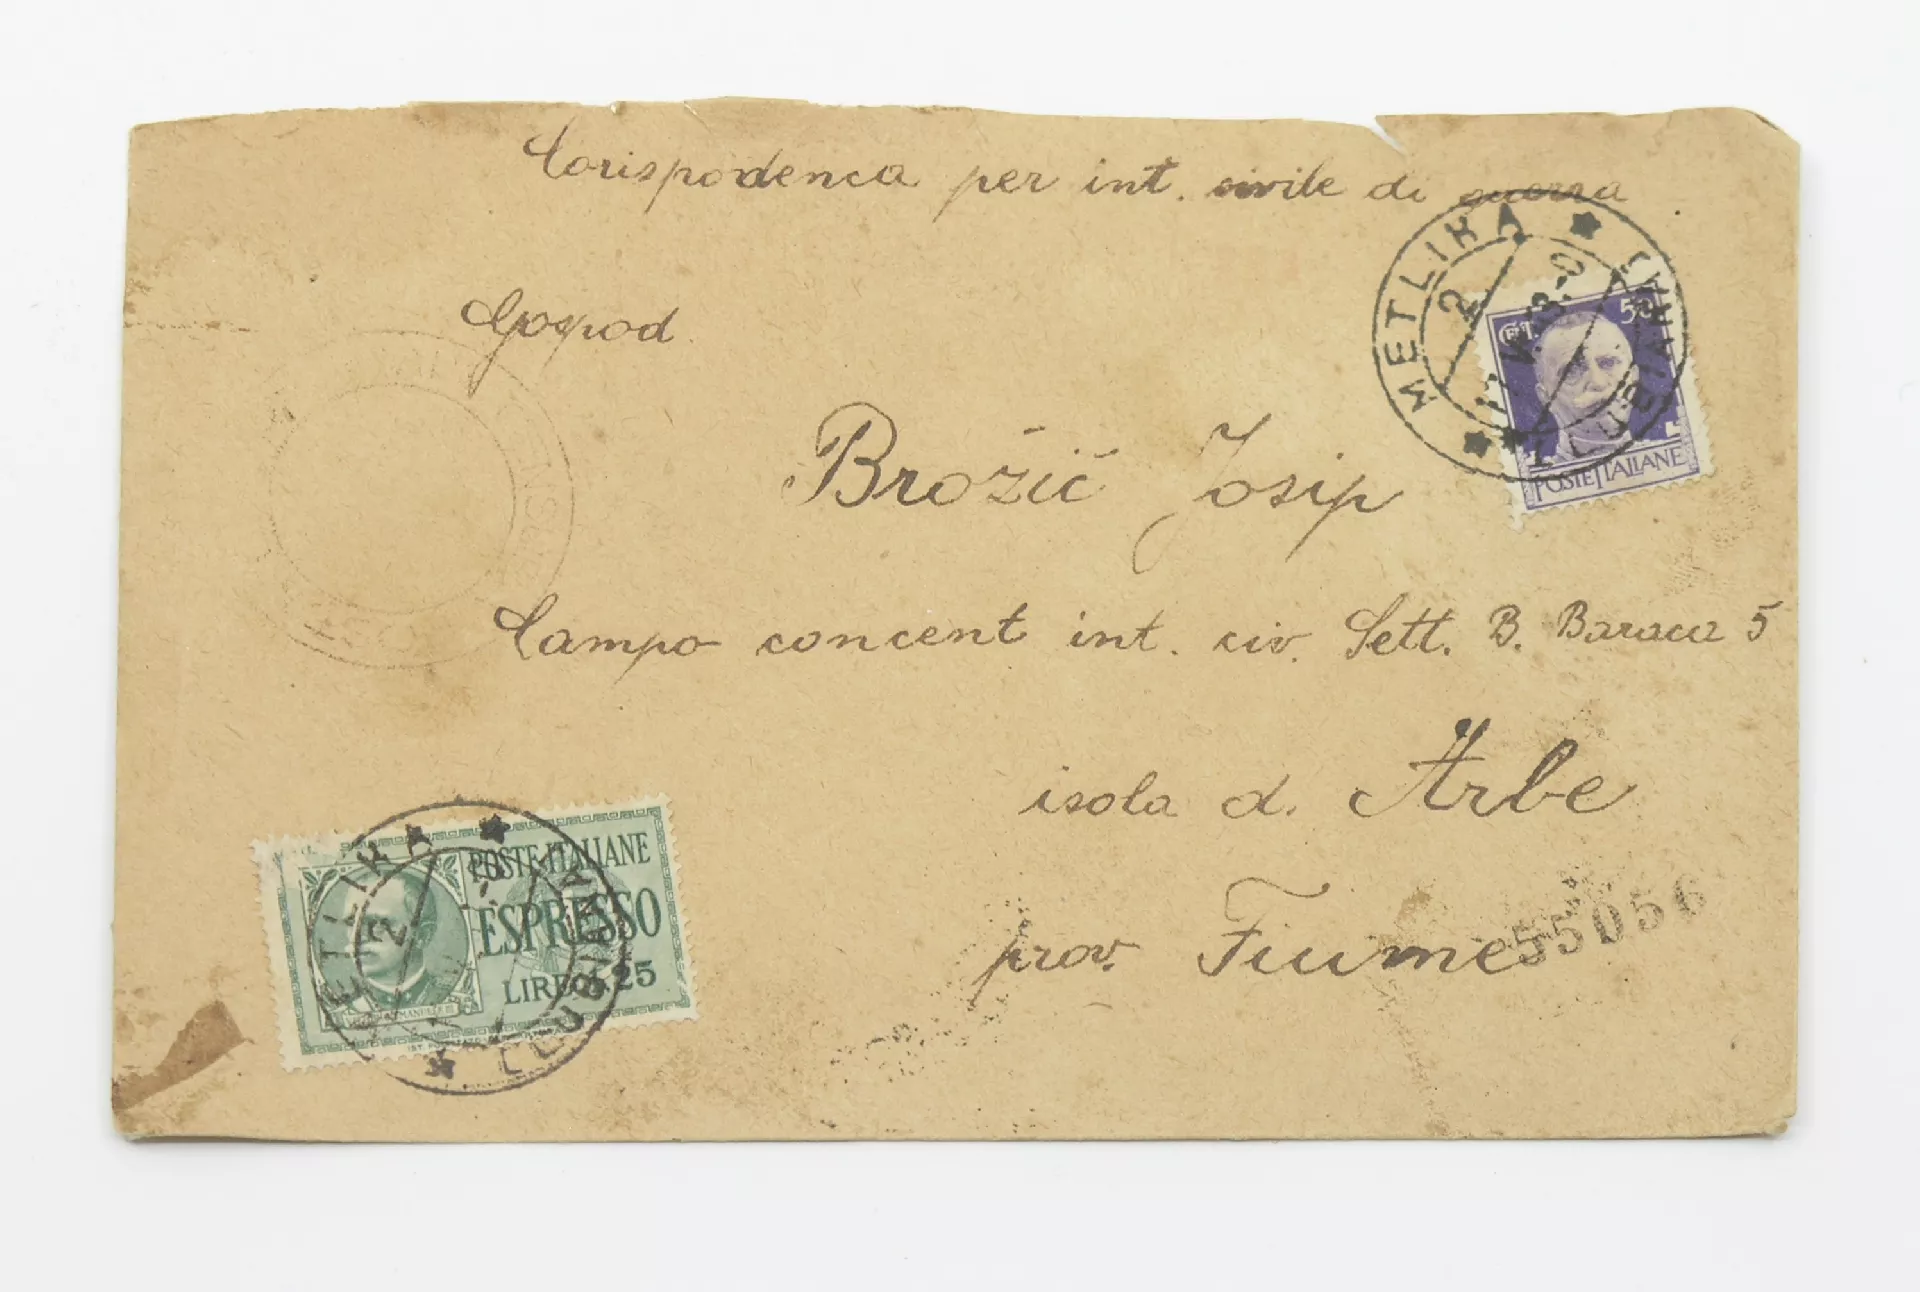 Corispodenca per int. civile di guerra
METLIKA
2
LUBIANA
CENT. 50
POSTE ITALIANE
Gospod
Brožič Josip
Campo concent int. civ. Sett. B. Baraca 5
isola d. Arbe
prov. Fiume
55056
METLIKA
2
LUBIANA
POSTE ITALIANE
ESPRESSO
LIRE 1,25